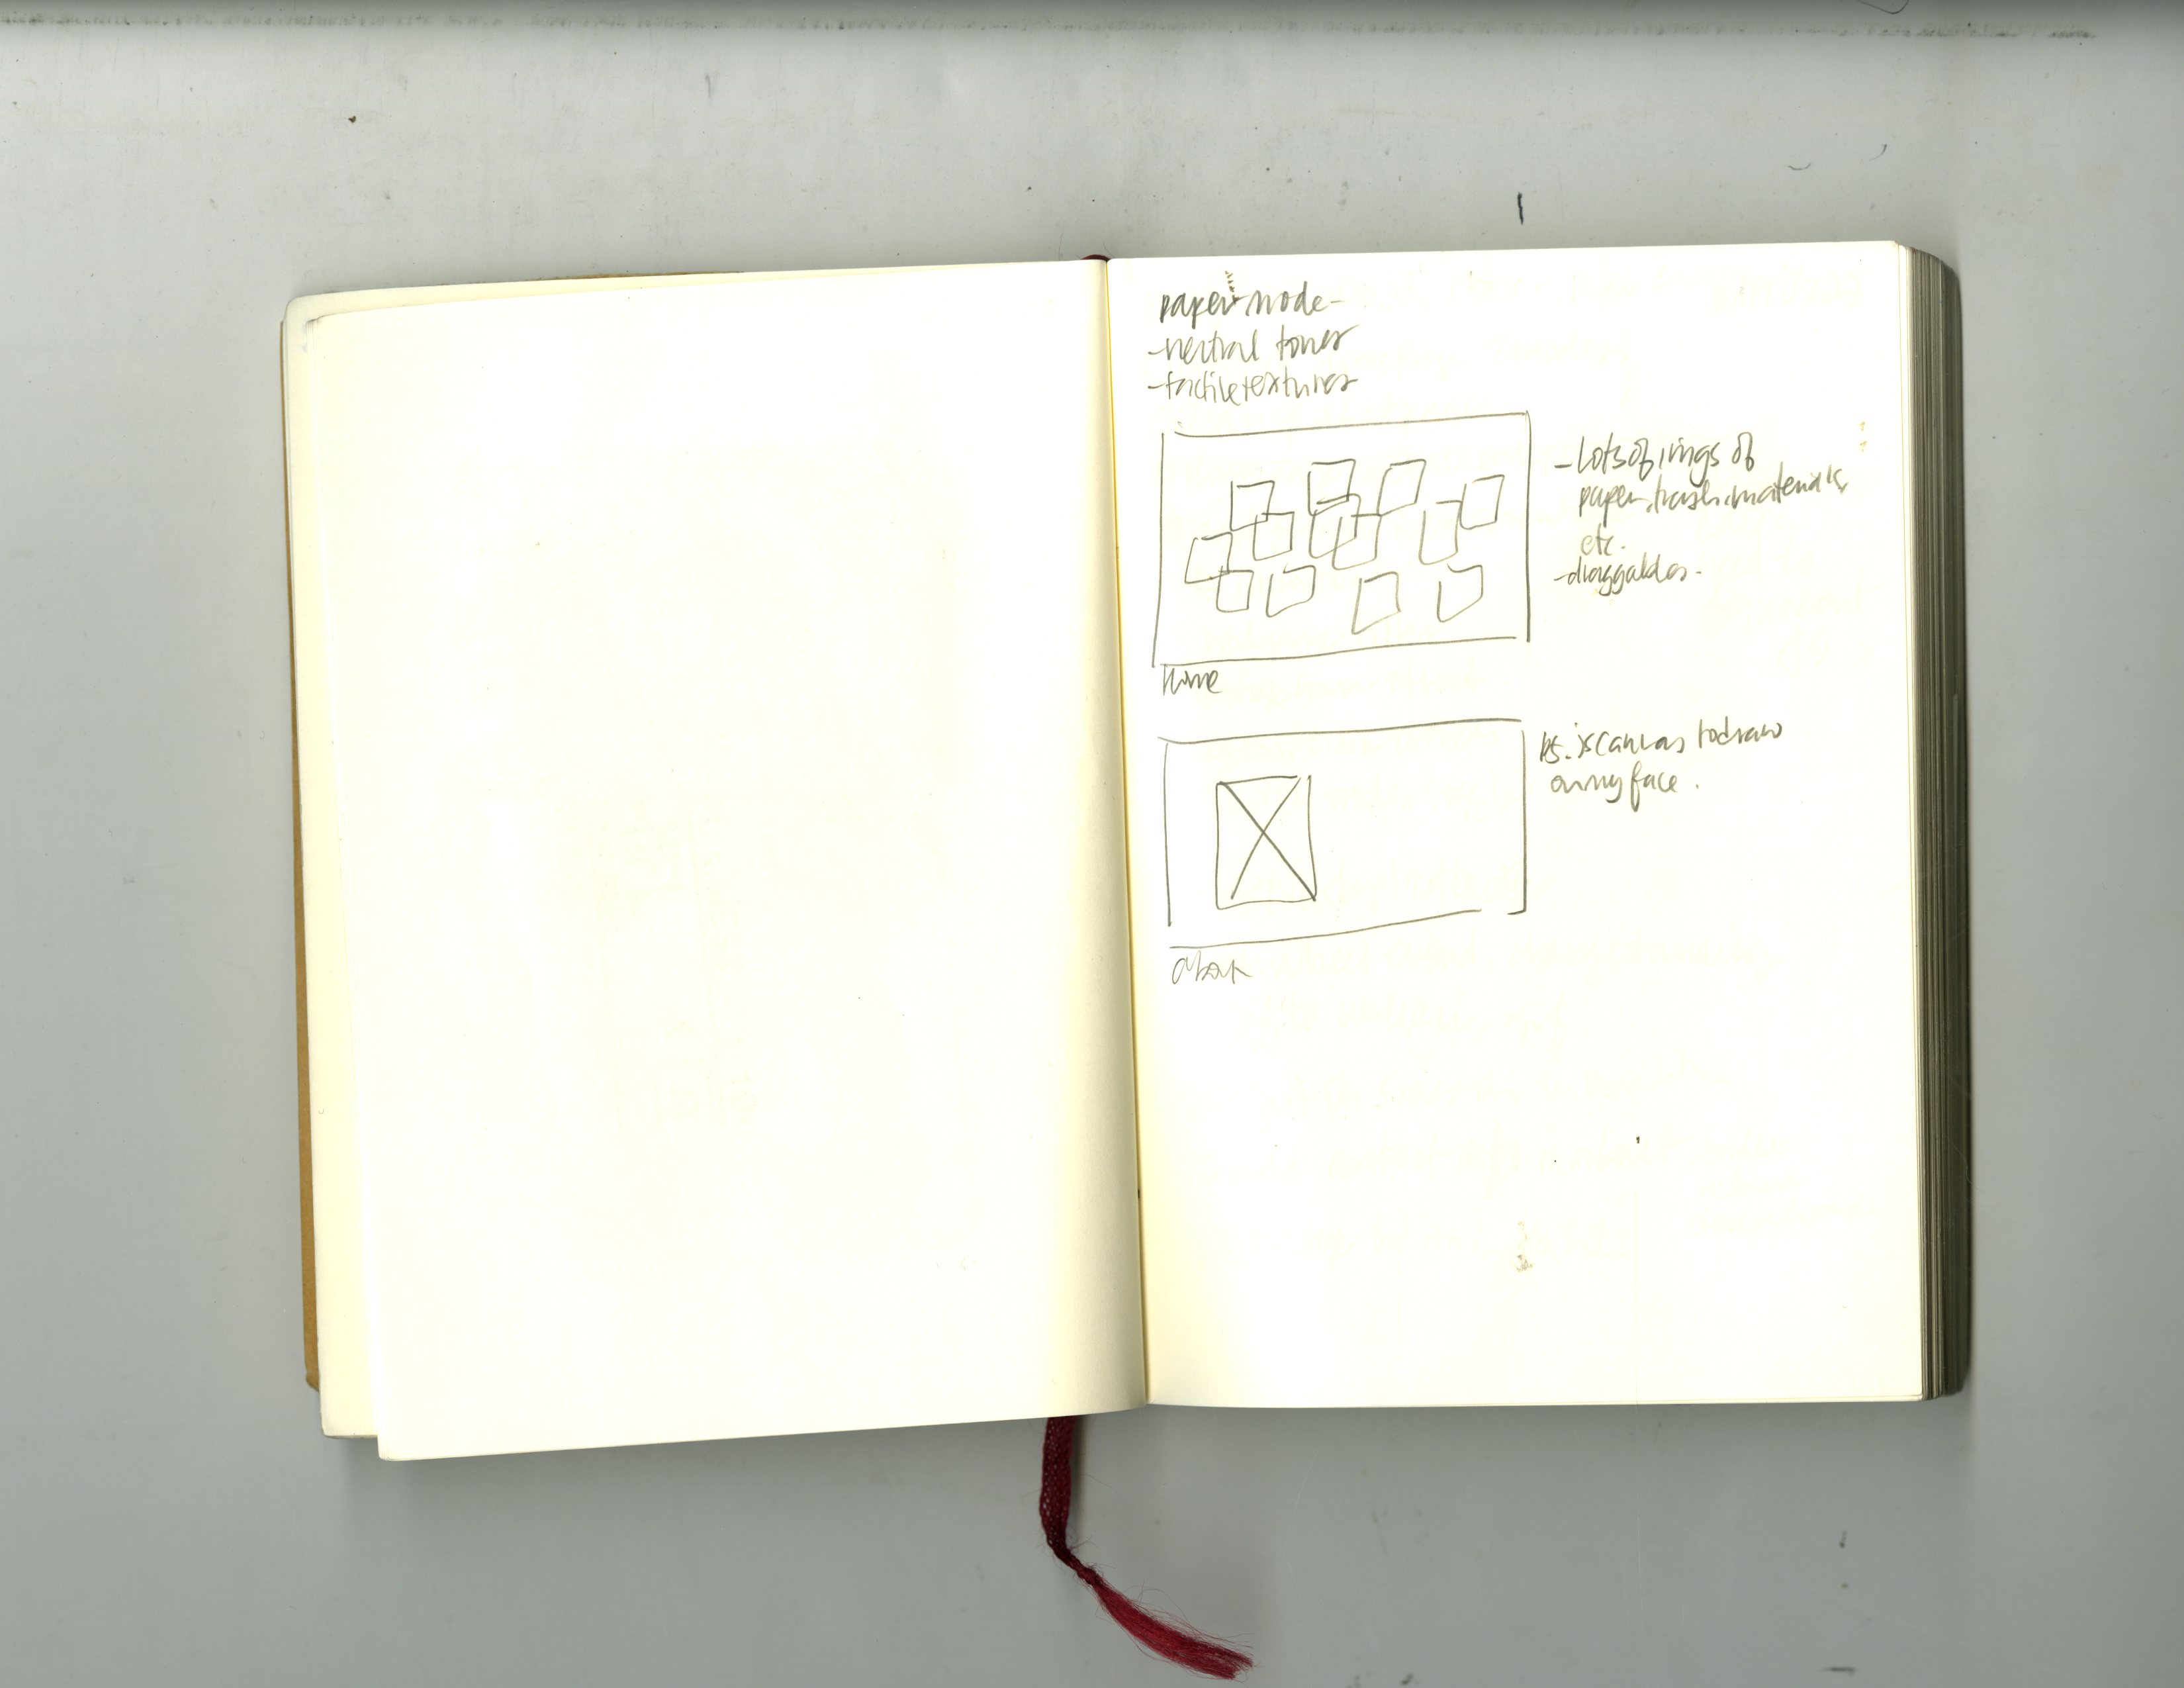 paper mode-
-neutral tones
-tactile textures
-Lots of imgs of
paper, trash, materials,
etc.
-draggables.
Home
p5.js canvas to draw
on my face.
about